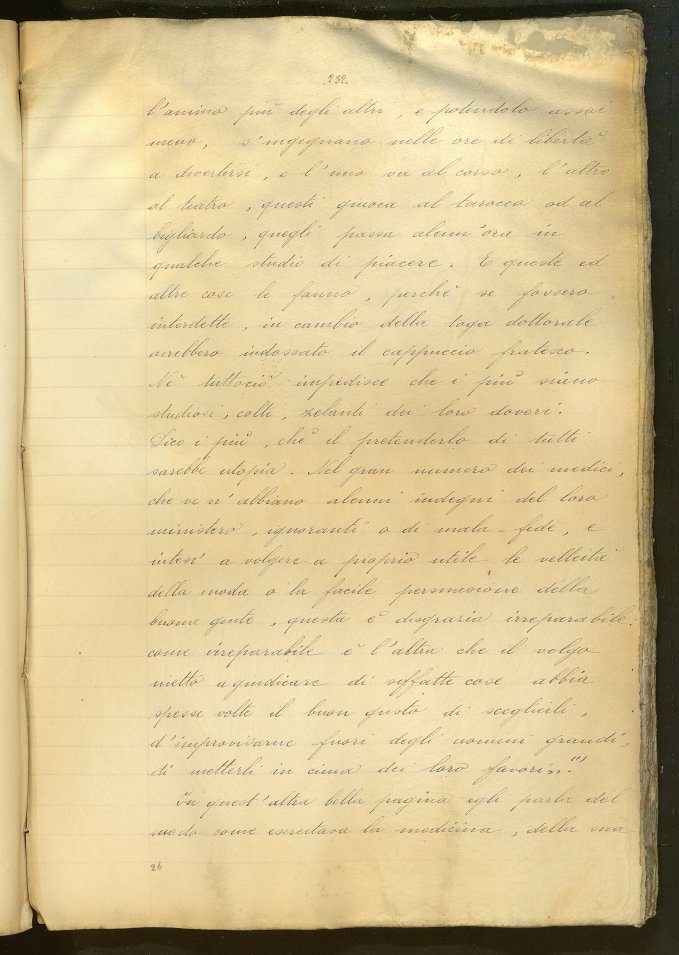 232
l'animo più degli altri, e potendolo assai
meno, s'ingegnano nelle ore di libertà
a divertirsi, e l'uno va al corso, l'altro
al teatro, questi giuoca al tarocco od al
bigliardo, quegli passa alcun'ora in
qualche studio di piacere. E queste ed
altre cose le fanno, perchè se fossero
interdette, in cambio della toga dottorale
avrebbero indossato il cappuccio fratesco.
Nè tuttociò impedisce che i più siano
studiosi, colti, zelanti dei loro doveri.
Dico i più, chè il pretenderlo di tutti
sarebbe utopia. Nel gran numero dei medici,
che ve n'abbiano alcuni indegni del loro
ministero, ignoranti o di mala-fede, e
intesi a volgere a proprio utile le velleità
della moda o la facile persuasione della
buona gente, questa è disgrazia irreparabile
come irreparabile è l'altra che il volgo
inetto a giudicare di siffatte cose abbia
spesse volte il buon gusto di sceglierli,
d'improvisarne fuori degli uomini grandi,
di metterli in cima dei loro favori».(1)
In quest'altra bella pagina egli parla del
modo come esercitava la medicina, della sua
26